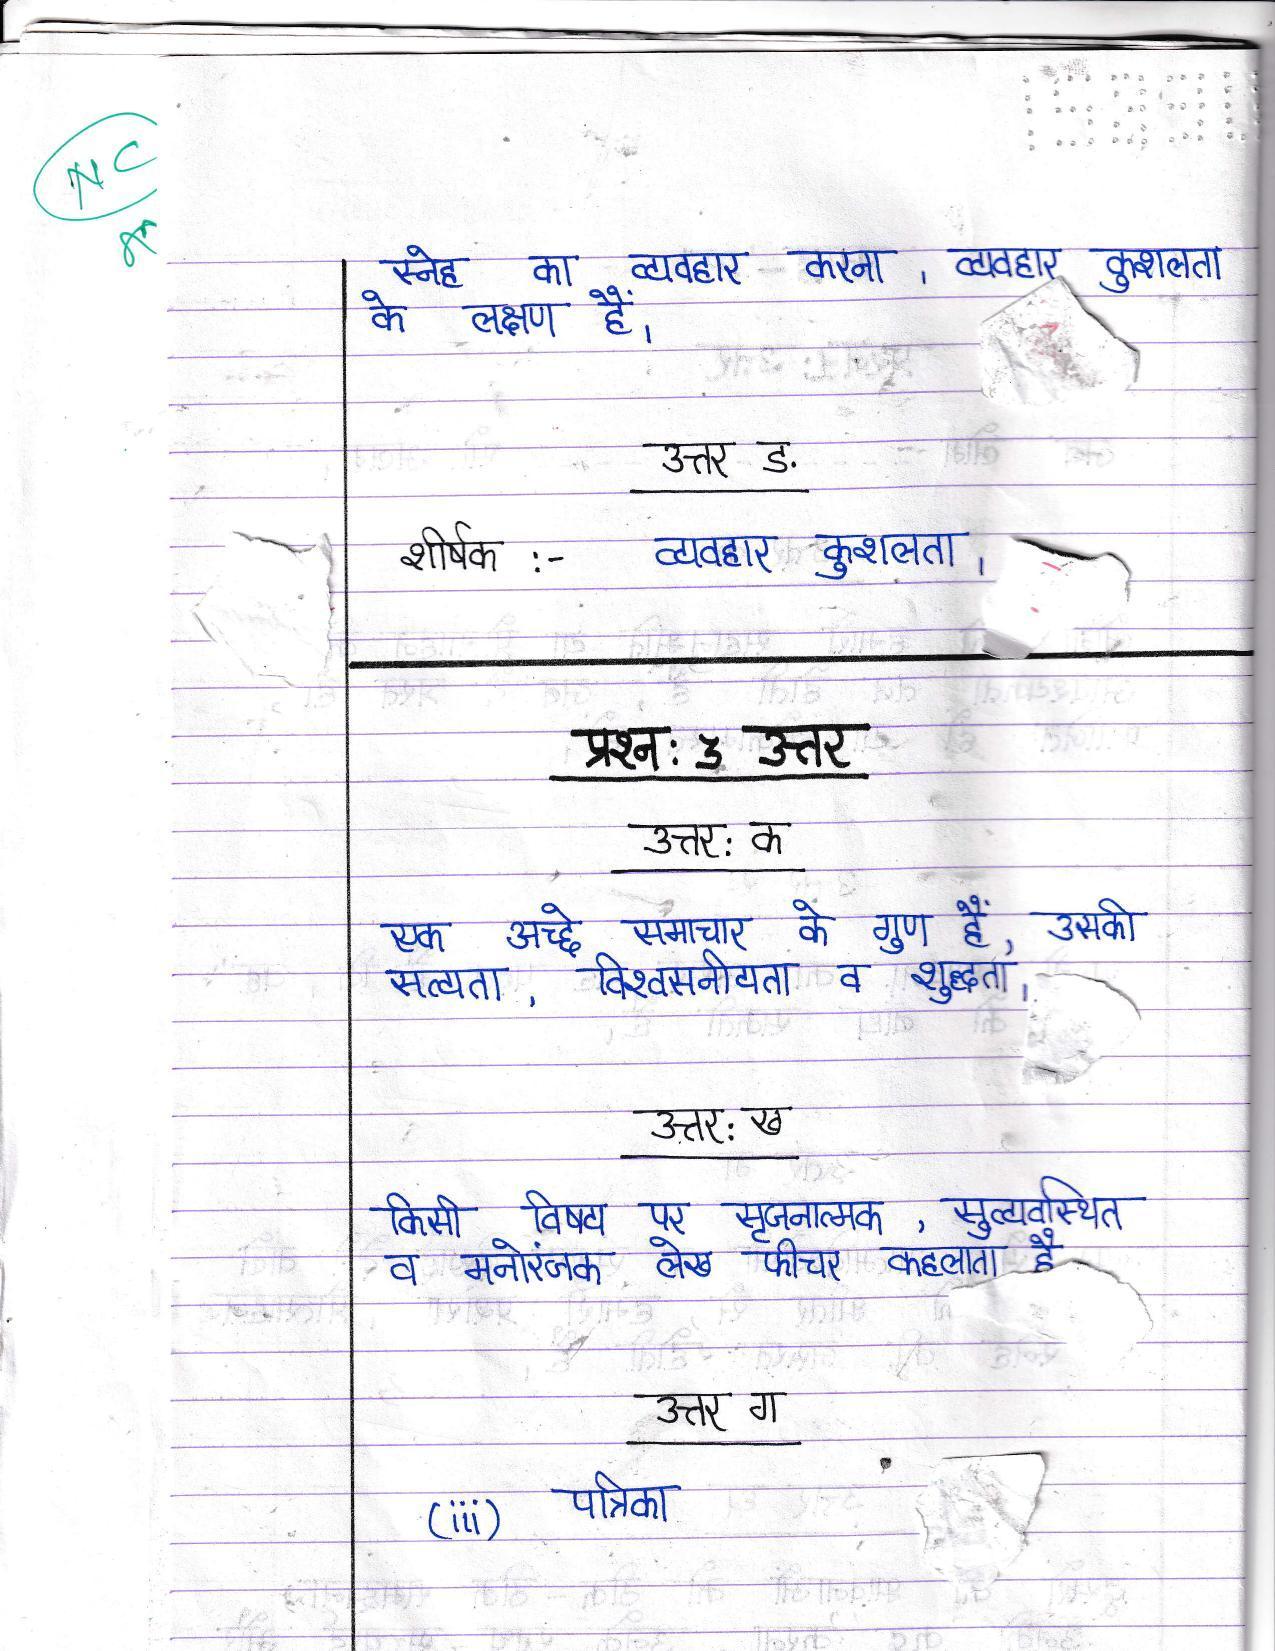 NC
स्नेह का व्यवहार करना, व्यवहार कुशलता
के लक्षण हैं।
उत्तर ङ.
शीर्षक :- व्यवहार कुशलता।
प्रश्न: 3 उत्तर
उत्तर: क
एक अच्छे समाचार के गुण हैं, उसकी
सत्यता, विश्वसनीयता व शुद्धता।
उत्तर: ख
किसी विषय पर सृजनात्मक, सुव्यवस्थित
व मनोरंजक लेख फीचर कहलाता है
उत्तर ग
(iii) पत्रिका